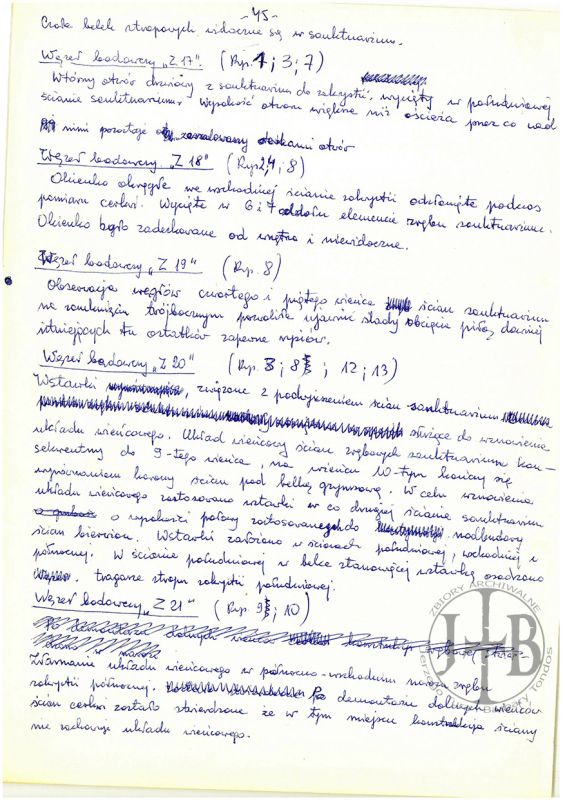 - 45 -
Czoła belek stropowych widoczne są w sanktuarium.
Węzeł badawczy „Z 17". (Ryp. 1; 3; 7)
Wtórny otwór drzwiowy z sanktuarium do zakrystii, wycięty w południowej
ścianie sanktuarium. Wysokość otworu większa niż ościeża przez co nad
nimi pozostaje zaszalowany deskami otwór
Węzeł badawczy „Z 18" (Rys 2, 4; 8)
Okienko okrągłe we wschodniej ścianie zakrystii odsłonięte podczas
pomiaru cerkwi. Wycięte w 6 i 7 oddolu elemencie zrębu sanktuarium.
Okienko było zadeskowane od wnętrza i niewidoczne.
Węzeł badawczy „Z 19" (Ryp. 8)
Obserwacja węgłów czwartego i piątego wieńca ścian sanktuarium
na zamknięciu trójbocznym pozwoliła ujawnić ślady obcięcia piłą dawniej
istniejących tu ostatków zapewne rysiów.
Węzeł badawczy „Z 20" (Ryp. 3; 8; 12; 13)
Wstawki związane z podwyższeniem ścian sanktuarium
służące do wznowienia
układu wieńcowego. Układ wieńcowy ścian zrębowych sanktuarium kon-
sekwentny do 9-tego wieńca, na wieńcu 10-tym kończy się
wyrównaniem korony ścian pod belkę gzymsową. W celu wznowienia
układu wieńcowego zastosowano wstawki w co drugiej ścianie sanktuarium
o wysokości połowy zastosowanych do nadbudowy
ścian bierwion. Wstawki założono w ścianach południowej, wschodniej i
północnej. W ścianie południowej w belce stanowiącej wstawkę osadzono
tragarze stropu zakrystii południowej.
Węzeł badawczy „Z 21" (Ryp. 9; 10)
Załamanie układu wieńcowego w północno-wschodnim narożu zrębu
zakrystii północnej. Po demontażu dolnych wieńców
ścian cerkwi zostało stwierdzone że w tym miejscu konstrukcja ściany
nie zachowuje układu wieńcowego.
ZBIORY ARCHIWALNE
J B
Jerzego i Barbary Tondos